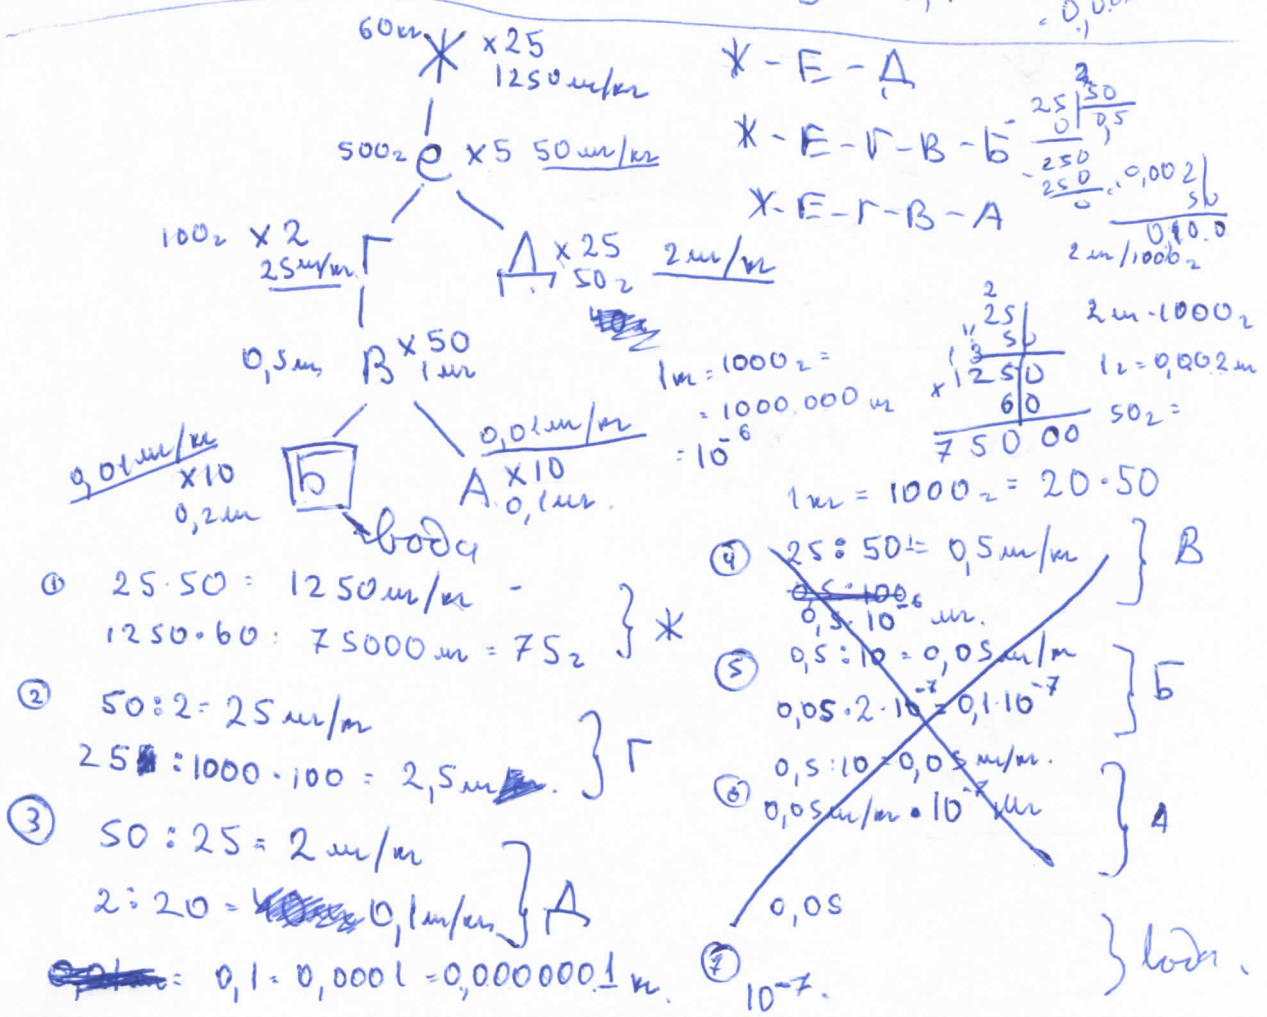 60кг Ж ×25
1250 мг/кг
500г е ×5 50 мг/кг
100г ×2 Г
25мг/кг
Д ×25 2 мг/кг
50г
0,5мг В ×50
1мг
0,01 мг/кг
×10
0,2мг
Б
0,01 мг/кг
А ×10
0,1мг.
вода
Ж - Е - Д
Ж - Е - Г - В - Б
Ж - Е - Г - В - А
25 50
0 0,5
250
250
0
0,002
50
0,10.0
2 мг/1000г
2
25
50
1250
60
75000
2 мг - 1000г
1г = 0,002 мг
50г =
1кг = 1000г =
= 1000.000 мг
= 10⁻⁶
1кг = 1000г = 20·50
① 25·50 = 1250 мг/кг
1250·60 = 75000 мг = 75г } Ж
② 50:2 = 25 мг/кг
25 :1000·100 = 2,5 мг. } Г
③ 50:25 = 2 мг/кг
2:20 = 0,1 мг/кг } Д
= 0,1 = 0,0001 = 0,0000001 кг.
④ 25:50 = 0,5 мг/кг } В
0,5:100
0,5·10⁻⁶ мг.
⑤ 0,5:10 = 0,05 мг/кг
0,05·2·10⁻⁷ = 0,1·10⁻⁷ } Б
0,5:10 = 0,05 мг/кг.
⑥ 0,05 мг/кг · 10⁻⁷ мг } А
0,05
⑦ 10⁻⁷. } вода.